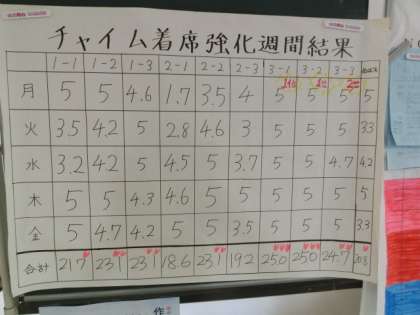 チャイム着席強化週間結果
1-1 1-2 1-3 2-1 2-2 2-3 3-1 3-2 3-3
月 5 5 4.6 1.7 3.5 4 5 5 5 5
火 3.5 4.2 5 2.8 4.6 3 5 5 5 3.3
水 3.2 4.2 5 4.5 5 3.7 5 5 4.7 4.2
木 5 5 4.3 4.6 5 5 5 5 5 5
金 5 4.7 4.2 5 5 3.5 5 5 5 3.3
合計 21.7 23.1 23.1 18.6 23.1 19.2 25.0 25.0 24.7 20.8
作